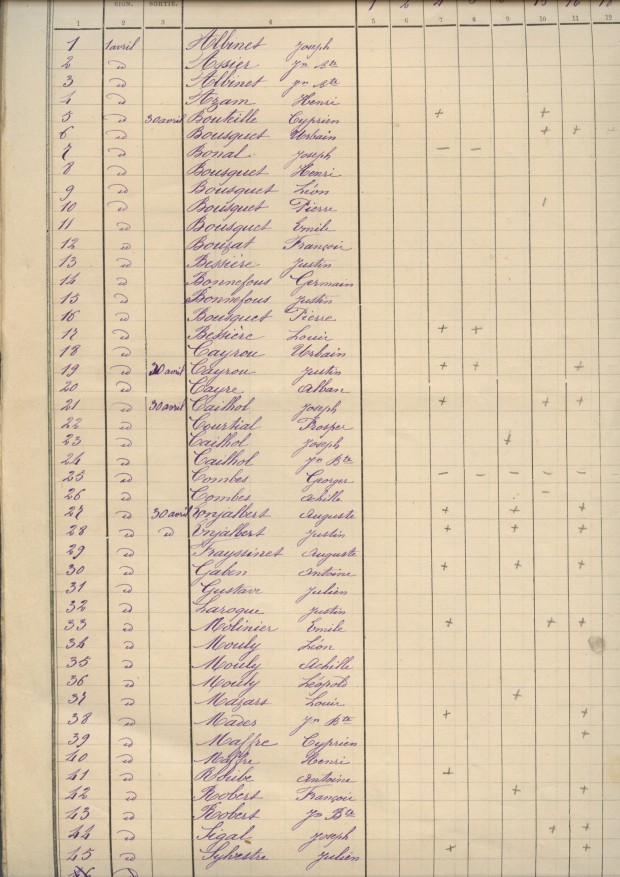 SION. SORTIE.
1 2 3 4 5 6 7 8 9 10 11 12
1 1 avril Albinet Joseph
2 d Assier Jn Bte
3 d Albinet Jn Bte
4 d Azam Henri
5 d 30 avril Cyprien + +
6 d Bousquet Urbain + +
7 d Bonal Joseph – –
8 d Bousquet Henri
9 d Bousquet Léon
10 d Bousquet Pierre
11 d Bousquet Emile
12 d Bouzat François
13 d Bessière Justin
14 d Bonnefous Germain
15 d Bonnefous Justin
16 d Bousquet Pierre
17 d Bessière Louis + +
18 d Cayrou Urbain
19 d 30 avril Cayrou Justin + + +
20 d Cayre Alban
21 d 30 avril Cailhol Joseph + + +
22 d Courtial Prosper
23 d Cailhol Joseph +
24 d Cailhol Jn Bte
25 d Combes Georges – – – – –
26 d Combes Achille –
27 d 30 avril Enjalbert Auguste + + +
28 d d Enjalbert Justin + + +
29 d Frayssinet Auguste
30 d Gaben Antoine + + +
31 d Gustave Julien
32 d Laroque Justin
33 d Molinier Emile + + +
34 d Mouly Léon
35 d Mouly Achille
36 d Mouly Léopold
37 d Mazars Louis +
38 d Jn Bte + +
39 d Maffre Cyprien +
40 d Maffre Henri
41 d Antoine +
42 d Robert François + +
43 d Robert Jn Bte
44 d Sigal Joseph + +
45 d Sylvestre Julien + +